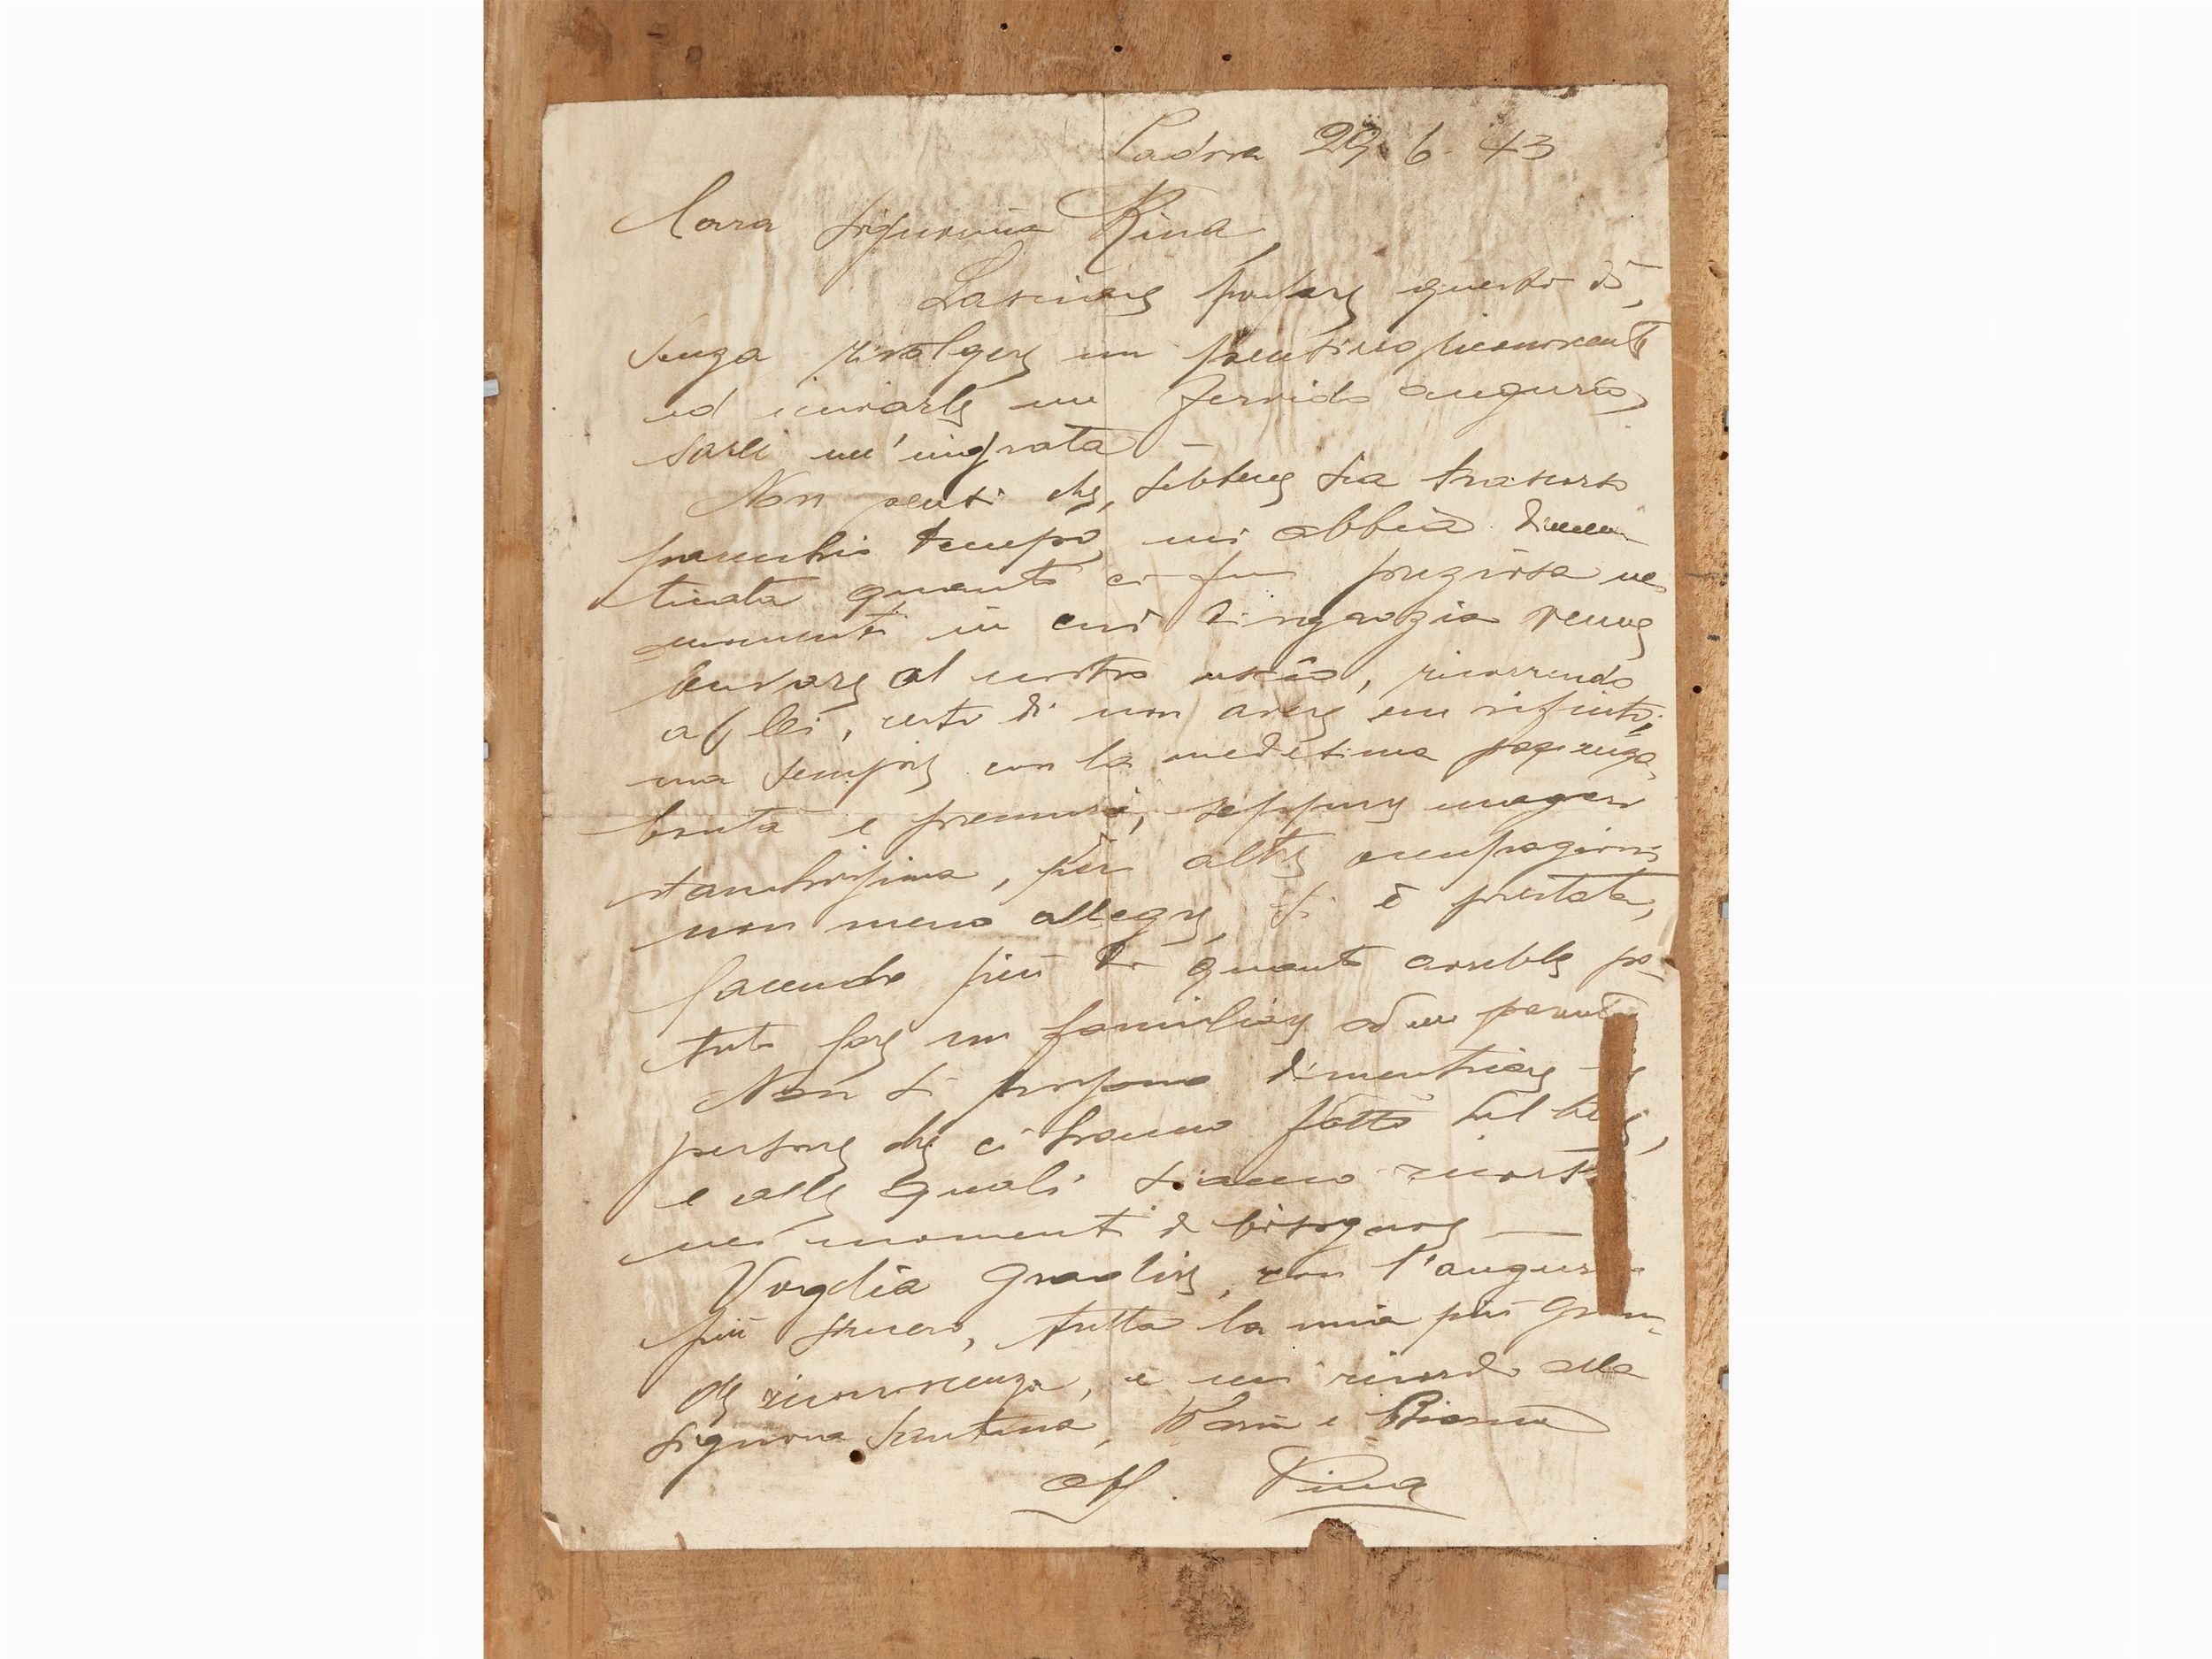 Padova 29. 6. 43
Cara Signorina Rina,
Lasciare passare questo dì,
senza rivolgere un pensiero riconoscente
ed inviarle un fervido augurio,
sarei un'ingrata –
Non pensi che, sebbene sia trascorso
parecchio tempo, mi abbia dimen
ticata quanto ci fu preziosa nei
momenti in cui disgrazia venne
bussare al nostro uscio, ricorrendo
a lei, certi di non avere un rifiuto;
ma sempre con la medesima pazienza,
bontà e premura, seppure magari
stanchissima, per altre occupazioni
non meno allegre, si è prestata,
facendo più di quanto avrebbe po-
tuto fare un familiare od un parente
Non si possono dimenticare le
persone che ci hanno fatto del bene,
e alle quali siamo ricorsi
nei momenti di bisogno —
Voglia gradire, con l'augurio
più sincero, tutta la mia più gran-
de riconoscenza, e un ricordo alla
Signora Santina, e
aff. Pina